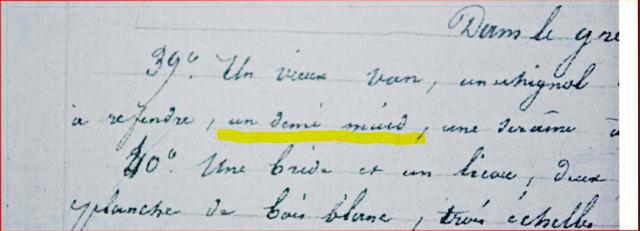 Dans le gre
39° Un vieux van, un chignol
à refendre, un demi muid, une
40° Une bride et un licou, deux
planche de bois blanc, trois échelles